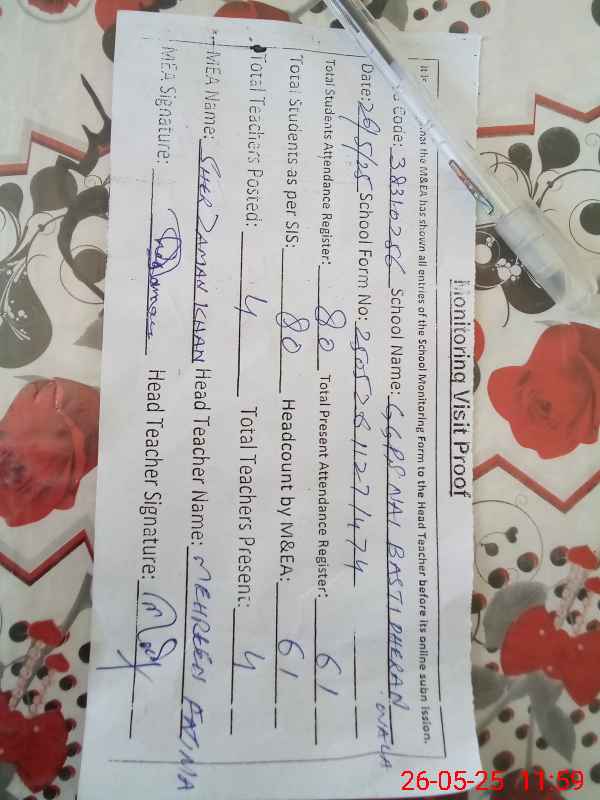 Monitoring Visit Proof
It is that the M&EA has shown all entries of the School Monitoring Form to the Head Teacher before its online submission.
Code: 38310256 School Name: GGPS NAI BASTI DHERAN WALA
Date: 26/5/25 School Form No: 25052811271474
Total Students Attendance Register: 80 Total Present Attendance Register: 61
Total Students as per SIS: 80 Headcount by M&EA: 61
Total Teachers Posted: 4 Total Teachers Present: 4
MEA Name: SHER ZAMAN KHAN Head Teacher Name: MEHREEN FATIMA
MEA Signature: Head Teacher Signature:
26-05-25 11:59